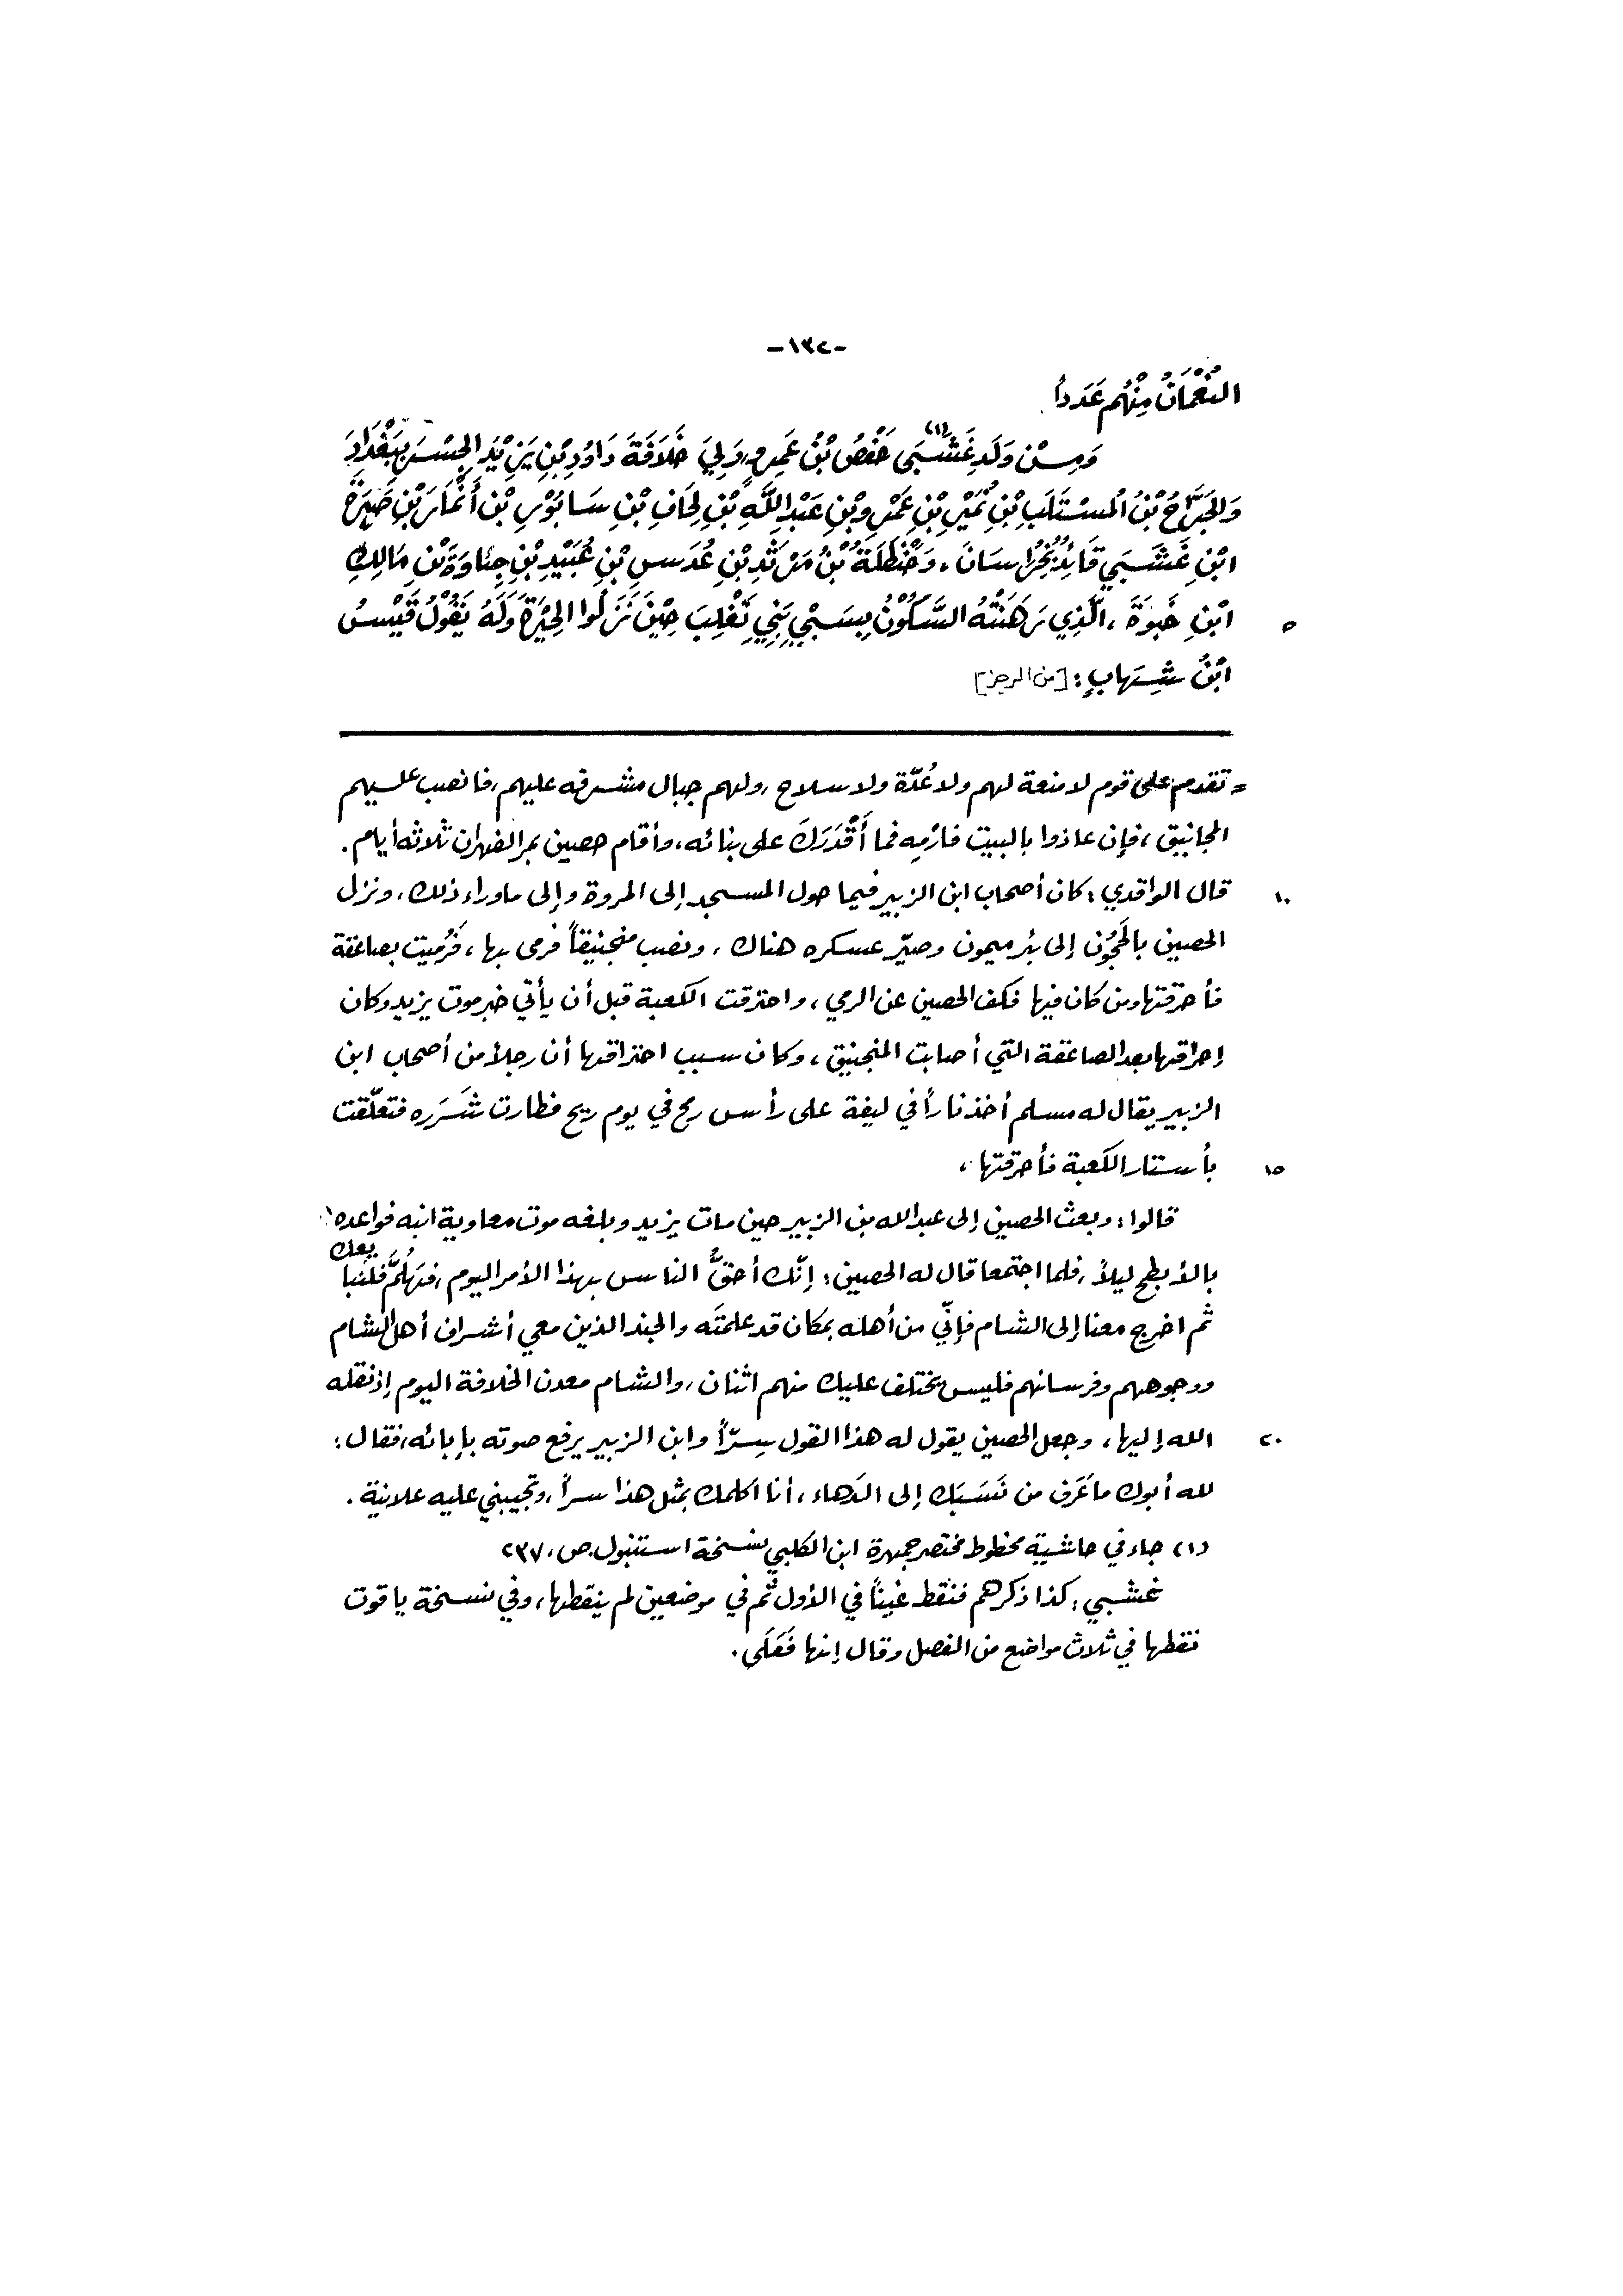 -١٣٢-
النُّعْمَانُ مِنْهُم عَدَداً
وَمِنْ وَلَدِ غَشْبَى (١) حَفْصُ بْنُ عَمِرٍو، وَلِيَ خَلَافَةَ دَاوُدِ بْنِ يَزِيْدَ الجِسْرَ بِبَغْدَادَ
وَالجَرَّاحُ بْنُ المُسْتَلَبِ بْنِ نُمَيْرِ بْنِ عَمْرِو بْنِ عَبْدِ اللَّهِ بْنِ لِحَافِ بْنِ سَابُوْرِ بْنِ أَنْمَارَ بْنِ ضَبِرَةَ
ابْنِ غَشَبِي قَائِدٌ بِخُرَاسَانَ، وَحَنْظَلَةُ بْنُ مَرْثَدِ بْنِ عُدَسِ بْنِ عُبَيْدِ بْنِ جِئَاوَةَ بْنِ مَالِكِ
ابْنِ خَبْوَةَ، الَّذِي رَهَنَتْهُ السَّكُوْنُ بِسَبْيِ بَنِي تَغْلِبَ حِيْنَ نَزَلُوا الحِيْرَةَ وَلَهُ يَقُوْلُ قَيْسُ
٥
ابْنُ شِهَابٍ: [من الرجز]
= تقدم على قوم لا منعة لهم ولا عُدّة ولا سلاح، ولهم جبال مشرفه عليهم، فانصب عليهم
المجانيق، فإن عاذوا بالبيت فارْمِه فما أَقْدَرَكَ على بنائه، وأقام حصين بمر الظهران ثلاثه أيام.
قال الواقدي: كان أصحاب ابن الزبير فيما حول المسجد إلى المروة وإلى ما وراء ذلك، ونزل
١٠
الحصين بالحَجُوْن إلى بئر ميمون وصيّر عسكره هناك، ونصب منجنيقاً فرمى بها، فَرُميت بصاعقة
فأحرقتها ومن كان فيها فكف الحصين عن الرمي، واحترقت الكعبة قبل أن يأتي خبر موت يزيد وكان
إحراقها بعد الصاعقة التي أصابت المنجنيق، وكان سبب احتراقها أن رجلاً من أصحاب ابن
الزبير يقال له مسلم أخذ ناراً في ليفة على رأس رمح في يوم ريح فطارت شَرَره فتعلّقت
بأستار الكعبة فأحرقتها،
١٥
قالوا: وبعث الحصين إلى عبد الله بن الزبير حين مات يزيد وبلغه موت معاوية ابنه فواعده
بالأبطح ليلاً، فلما اجتمعا قال له الحصين: إنّك أحقُّ الناس بهذا الأمر اليوم، فهَلُمَّ فلنبايعك
ثم اخرج معنا إلى الشام فإنّي من أهله بمكان قد علمتَه والجند الذين معي أشراف أهل الشام
ووجوههم وفرسانهم فليس يختلف عليك منهم اثنان، والشام معدن الخلافة اليوم إذ نقله
الله إليها، وجعل الحصين يقول له هذا القول سِرّاً وابن الزبير يرفع صوته بإبائه، فقال:
٢٠
لله أبوك ما عَرَف من نَسَبَك إلى الدَهاء، أنا اكلمك بمثل هذا سراً، وتجيبني عليه علانية.
(١) جاء في حاشية مخطوط مختصر جمهرة ابن الكلبي نسخة استنبول ص، ٢٣٧
غشبي: كذا ذكرهم فنقط غيناً في الأول ثم في موضعين لم ينقطها، وفي نسخة ياقوت
نقطها في ثلاث مواضع من الفصل وقال إنها فَعَلَى.